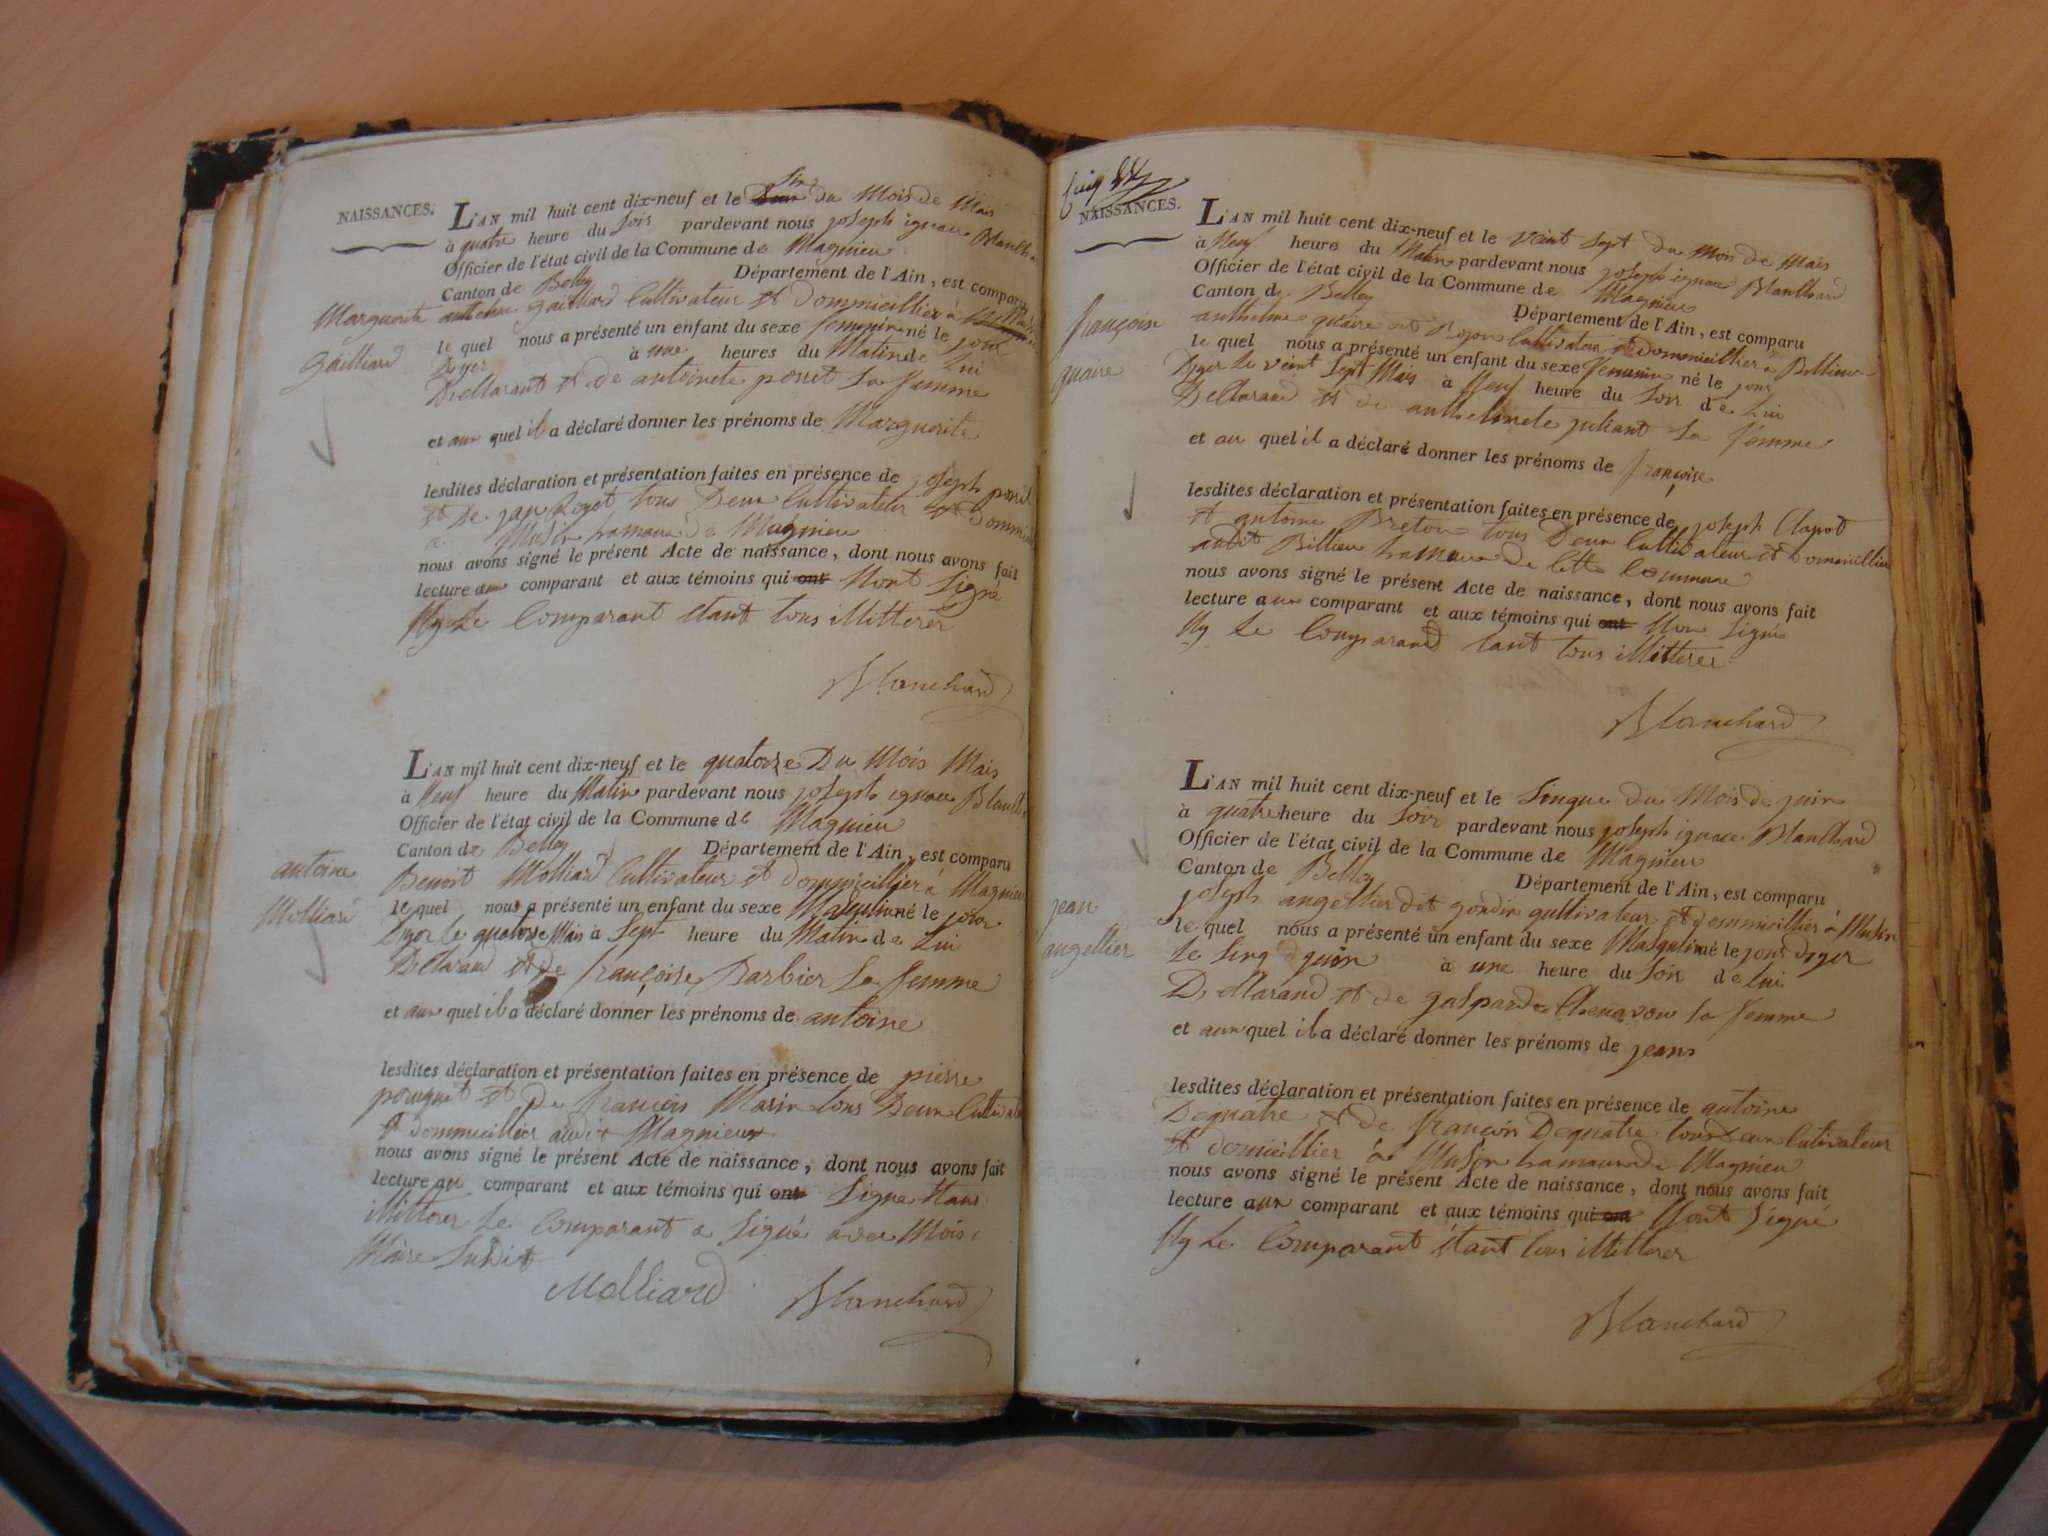 NAISSANCES.
L'AN mil huit cent dix-neuf et le Six du Mois de Mais
à quatre heure du Soir pardevant nous joseph ignace
Officier de l'état civil de la Commune de Magnieu
Canton de Belley Département de l'Ain, est comparu
Marguerite
gailliard
gailliard Cultivateur et dommicillier à
le quel nous a présenté un enfant du sexe feminin né le jour
Dyer à une heures du Matin de Lui
Declarant et de antoinete porret Sa femme
et aux quel il a déclaré donner les prénoms de Marguerite
lesdites déclaration et présentation faites en présence de joseph
et de jan tous Deux Cultivateur et
a Musin hamaux de Magnieu
nous avons signé le présent Acte de naissance, dont nous avons fait
lecture aux comparant et aux témoins qui ont Nont Signé
Ny Le Comparant etant tous illitterer
Blanchard
L'AN mil huit cent dix-neuf et le quatorze Du Mois Mais
à Neuf heure du Matin pardevant nous joseph ignace
Officier de l'état civil de la Commune de Magnieu
Canton de Belley Département de l'Ain, est comparu
antoine
Molliard
Benoit Molliard Cultivateur et dommicillier à Magnieu
le quel nous a présenté un enfant du sexe Masculin né le jour
Dyer le quatorze Mais à Sept heure du Matin de Lui
Declarand et de françoise Barbier Sa femme
et aux quel il a déclaré donner les prénoms de antoine
lesdites déclaration et présentation faites en présence de pierre
et de françois Marin tous Deux
et dommicillier audit Magnieux
nous avons signé le présent Acte de naissance, dont nous avons fait
lecture au comparant et aux témoins qui ont Signe
illitterer Le Comparant a Signé avec Mois
Maire Sudit
Molliard Blanchard
NAISSANCES.
L'AN mil huit cent dix-neuf et le Veint Sept du Mois de Mais
à Neuf heure du Matin pardevant nous joseph ignace Blanchard
Officier de l'état civil de la Commune de Magnieu
Canton de Belley Département de l'Ain, est comparu
françoise
quaire
anthelme quaire Cultivateur et dommicillier a Billieu
le quel nous a présenté un enfant du sexe femminin né le jour
Dyer le veint Sept Mais à Neuf heure du Soir de Lui
Declarand et de anthelmete juliant Sa femme
et au quel il a déclaré donner les prénoms de françoise
lesdites déclaration et présentation faites en présence de joseph Clapot
et antoine Breton tous Deux Cultivateur et Dommicillier
audit Billieu hamaux de Cette Commune
nous avons signé le présent Acte de naissance, dont nous avons fait
lecture aux comparant et aux témoins qui ont Non Signés
Ny Le Comparand tant tous illitterer
Blanchard
L'AN mil huit cent dix-neuf et le Sinque du Mois de juin
à quatre heure du Soir pardevant nous joseph ignace Blanchard
Officier de l'état civil de la Commune de Magnieu
Canton de Belley Département de l'Ain, est comparu
jean
angellier
joseph angellier dit gondin qultivateur et dommicillier à Musin
le quel nous a présenté un enfant du sexe Masqulin né le jour dyer
Le Sinq juin à une heure du Soir de lui
Declarand et de gasparde Chenavou sa femme
et aux quel il a déclaré donner les prénoms de jeans
lesdites déclaration et présentation faites en présence de antoine
Dequatre et de françois Dequatre tous deux Cutivateur
et domicillier à Musin hamaux de Magnieu
nous avons signé le présent Acte de naissance, dont nous avons fait
lecture aux comparant et aux témoins qui ont Nont Signé
Ny Le Comparant étant tous illitterer
Blanchard